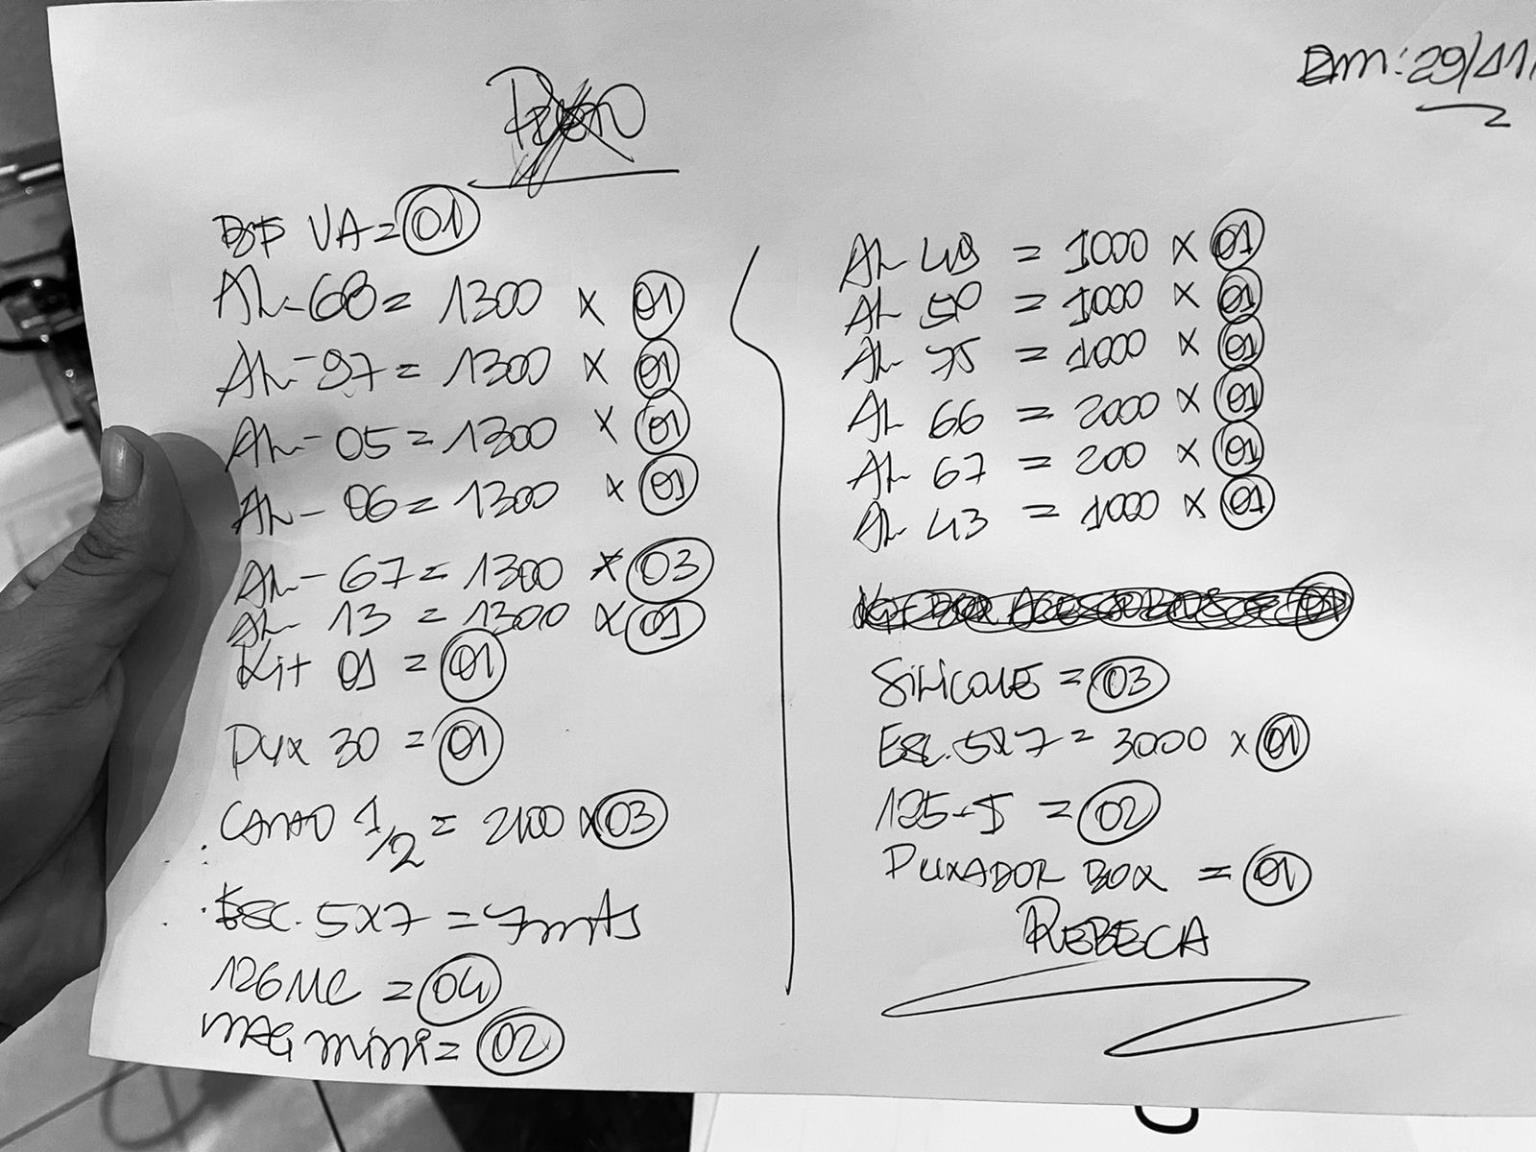 Em: 29/11/
VA = 01
AL-68 = 1300 x 01
AL-97 = 1300 x 01
AL-05 = 1300 x 01
AL-06 = 1300 x 01
AL-67 = 1300 x 03
AL-13 = 1300 x 01
Kit 01 = 01
Pux 30 = 01
CANTO 1/2 = 2100 x 03
Esc. 5x7 = 7mts
126 MC = 04
MAG mini = 02
AL 49 = 1000 x 01
AL 50 = 1000 x 01
AL 75 = 1000 x 01
AL 66 = 2000 x 01
AL 67 = 200 x 01
AL 43 = 1000 x 01
SiLiCONE = 03
Esc. 5x7 = 3000 x 01
125-I = 02
PUXADOR BOX = 01
REBECA